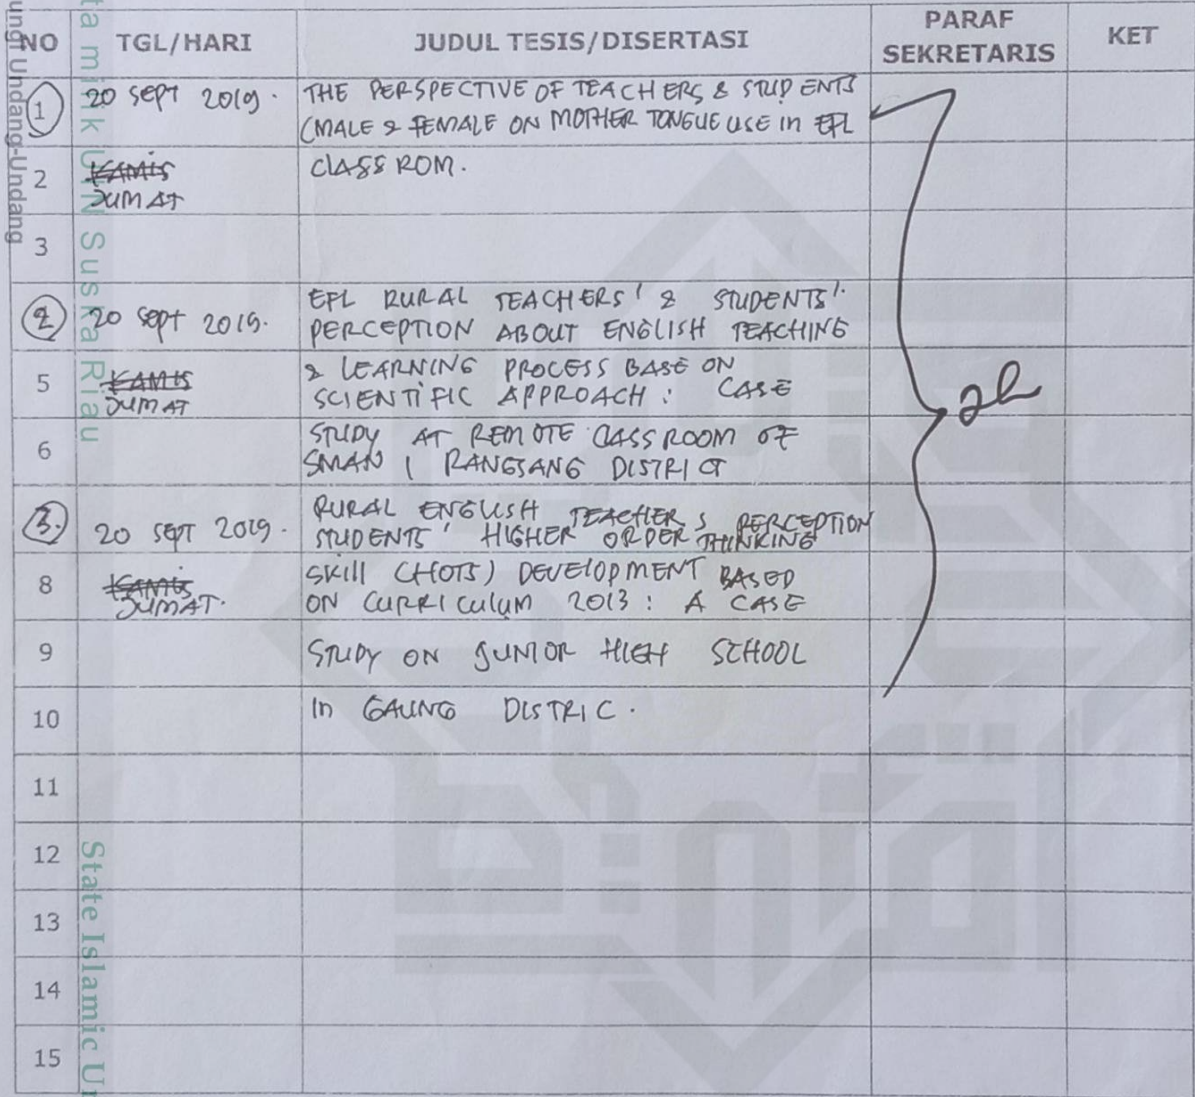 NO TGL/HARI JUDUL TESIS/DISERTASI PARAF SEKRETARIS KET
1 20 SEPT 2019. THE PERSPECTIVE OF TEACHERS & STUDENTS
(MALE & FEMALE ON MOTHER TONGUE USE in EFL
2 KAMIS CLASSROM.
JUMAT
3
EFL RURAL TEACHERS' & STUDENTS'
2 20 SEPT 2019. PERCEPTION ABOUT ENGLISH TEACHING
5 KAMIS & LEARNING PROCESS BASE ON
JUMAT SCIENTIFIC APPROACH : CASE
6 STUDY AT REMOTE CLASSROOM OF
SMAN 1 RANGSANG DISTRICT
3. RURAL ENGLISH TEACHERS PERCEPTION
20 SEPT 2019. STUDENTS' HIGHER ORDER THINKING
8 KAMIS SKILL (HOTS) DEVELOPMENT BASED
JUMAT. ON CURRICULUM 2013 : A CASE
9 STUDY ON JUNIOR HIGH SCHOOL
10 in GAUNG DISTRIC.
11
12
13
14
15
ungi Undang-Undang
ta milik UIN Suska Riau
State Islamic Un